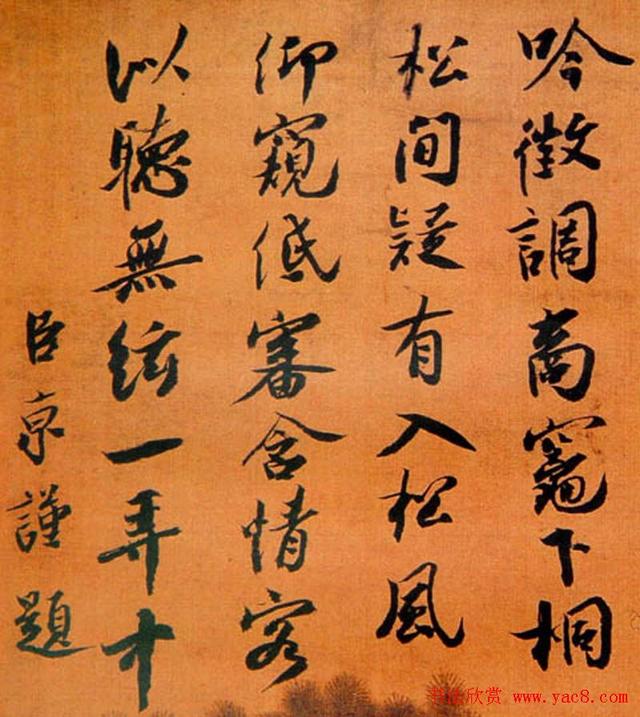 吟徵調商竈下桐
松間疑有入松風
仰窺低審含情客
似聽無絃一弄中
臣京謹題
书法欣赏 www.yac8.com